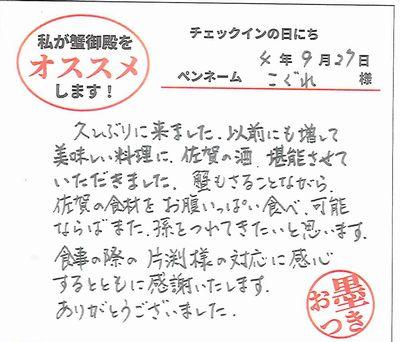 私が蟹御殿を
オススメ
します！
チェックインの日にち
4年9月27日
ペンネーム こぐれ 様
久しぶりに来ました。以前にも増して
美味しい料理に、佐賀の酒、堪能させて
いただきました。蟹もさることながら、
佐賀の食材をお腹いっぱい食べ、可能
ならばまた、孫をつれてきたいと思います。
食事の際の片渕様の対応に感心
するとともに感謝いたします。
ありがとうございました。
お墨つき